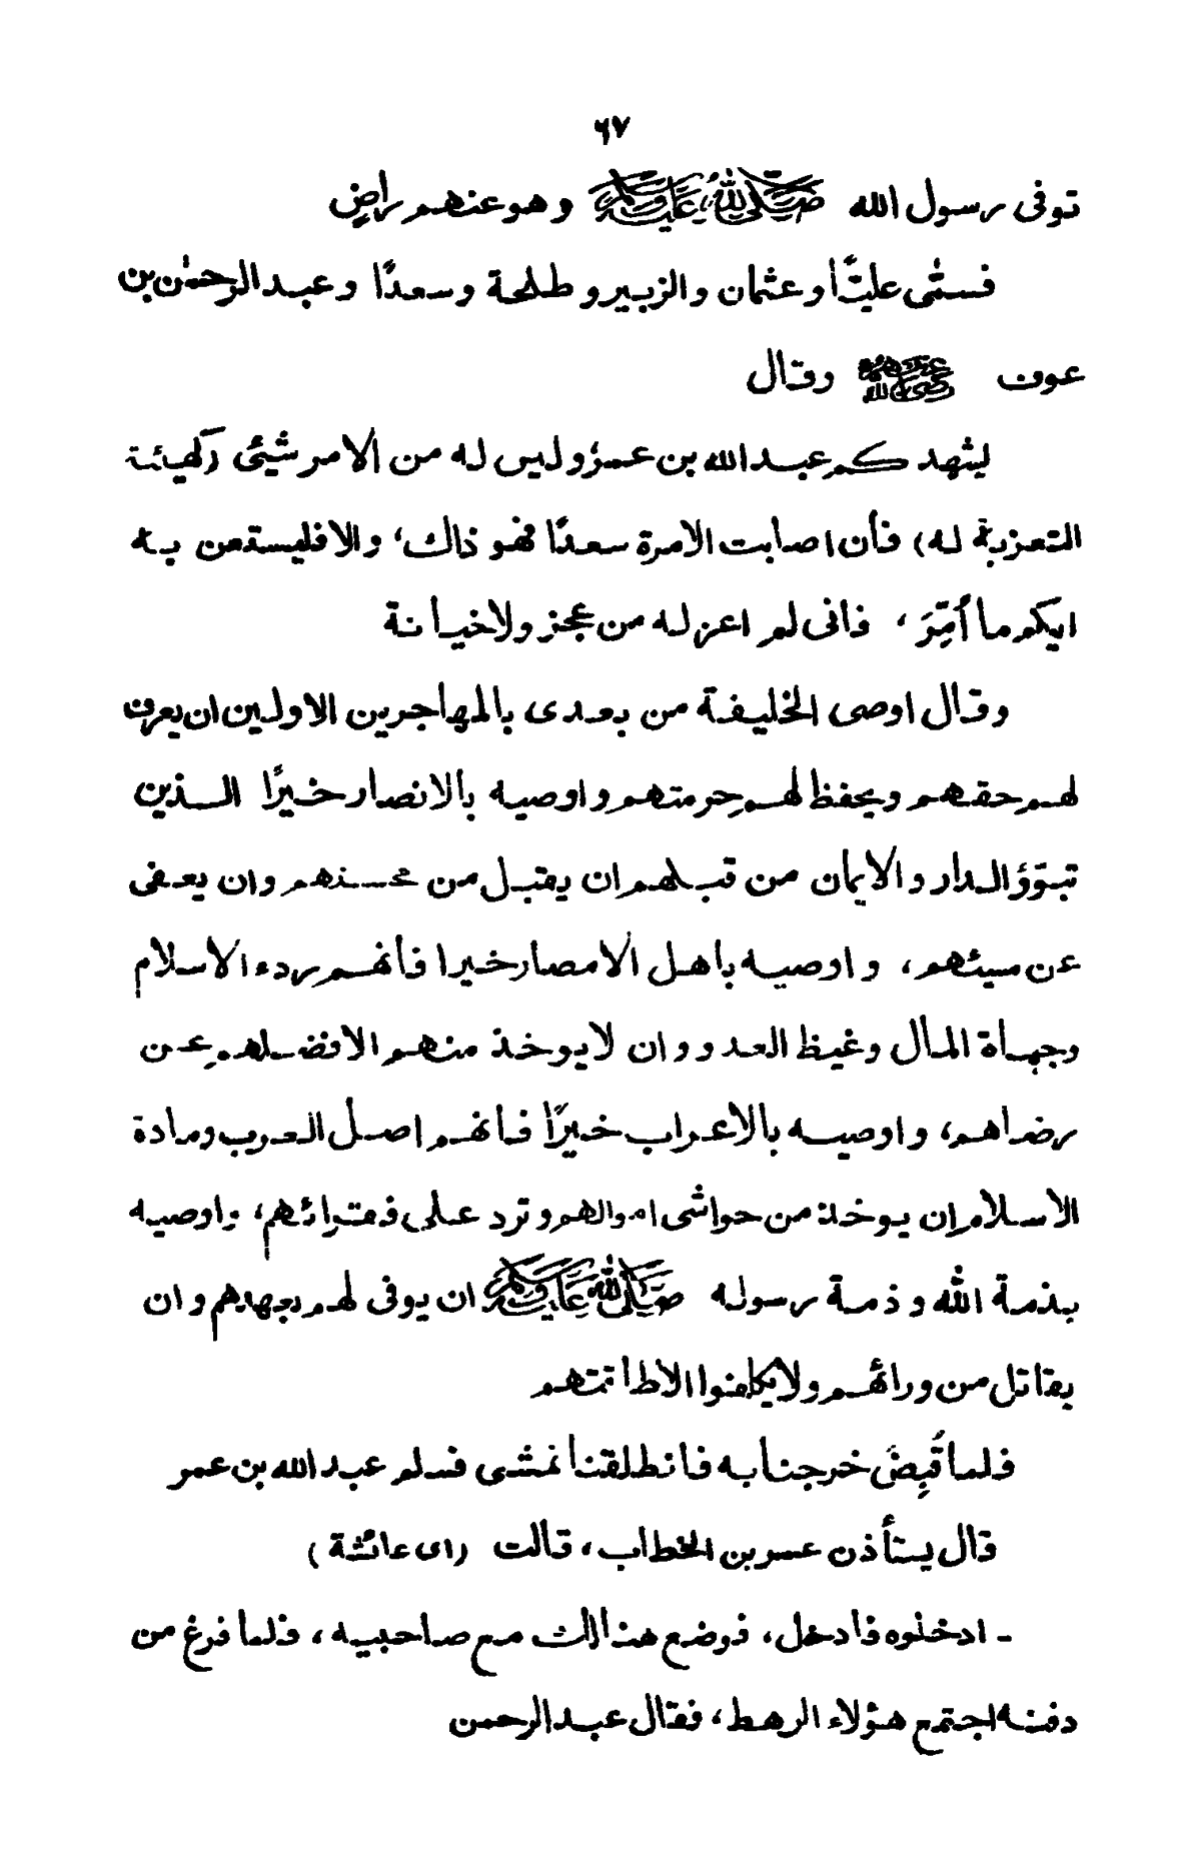 ٦٧
توفى رسول الله صلى الله عليه وسلم وهو عنهم راضٍ
فسمّى عليًّا وعثمان والزبير وطلحة وسعدًا وعبدالرحمٰن بن
عوف رضى الله عنهم وقال
ليشهدكم عبدالله بن عمرؓ وليس له من الامر شيئى (كهيئة
التعزية له) فأن اصابت الامرة سعدًا فهو ذاك، والا فليستعن به
ايكم ما اُمِّرَ، فانى لم اعزله من عجز ولا خيانة
وقال اوصى الخليفة من بعدى بالمهاجرين الاولين ان يعرف
لهم حقهم ويحفظ لهم حرمتهم واوصيه بالانصار خيرًا الذين
تبوّؤ الدار والايمان من قبلهم ان يقبل من محسنهم وان يعفى
عن مسيئهم، واوصيه باهل الامصار خيرا فأنهم ردء الاسلام
وجباة المال وغيظ العدو وان لا يوخذ منهم الا فضلهم عن
رضاهم، واوصيه بالاعراب خيرًا فأنهم اصل العرب ومادة
الاسلام ان يوخذ من حواشى اموالهم وترد على فقرائهم، واوصيه
بذمة الله وذمة رسوله صلى الله عليه وسلم ان يوفى لهم بعهدهم وان
يقاتل من ورائهم ولا يكلفوا الا طاقتهم
فلما قُبِضَ خرجنا به فانطلقنا نمشى فسلم عبدالله بن عمر
قال يستأذن عمر بن الخطاب، قالت (اى عائشة)
- ادخلوه فادخل، فوضع هنالك مع صاحبيه، فلما فرغ من
دفنه اجتمع هؤلاء الرهط، فقال عبدالرحمن